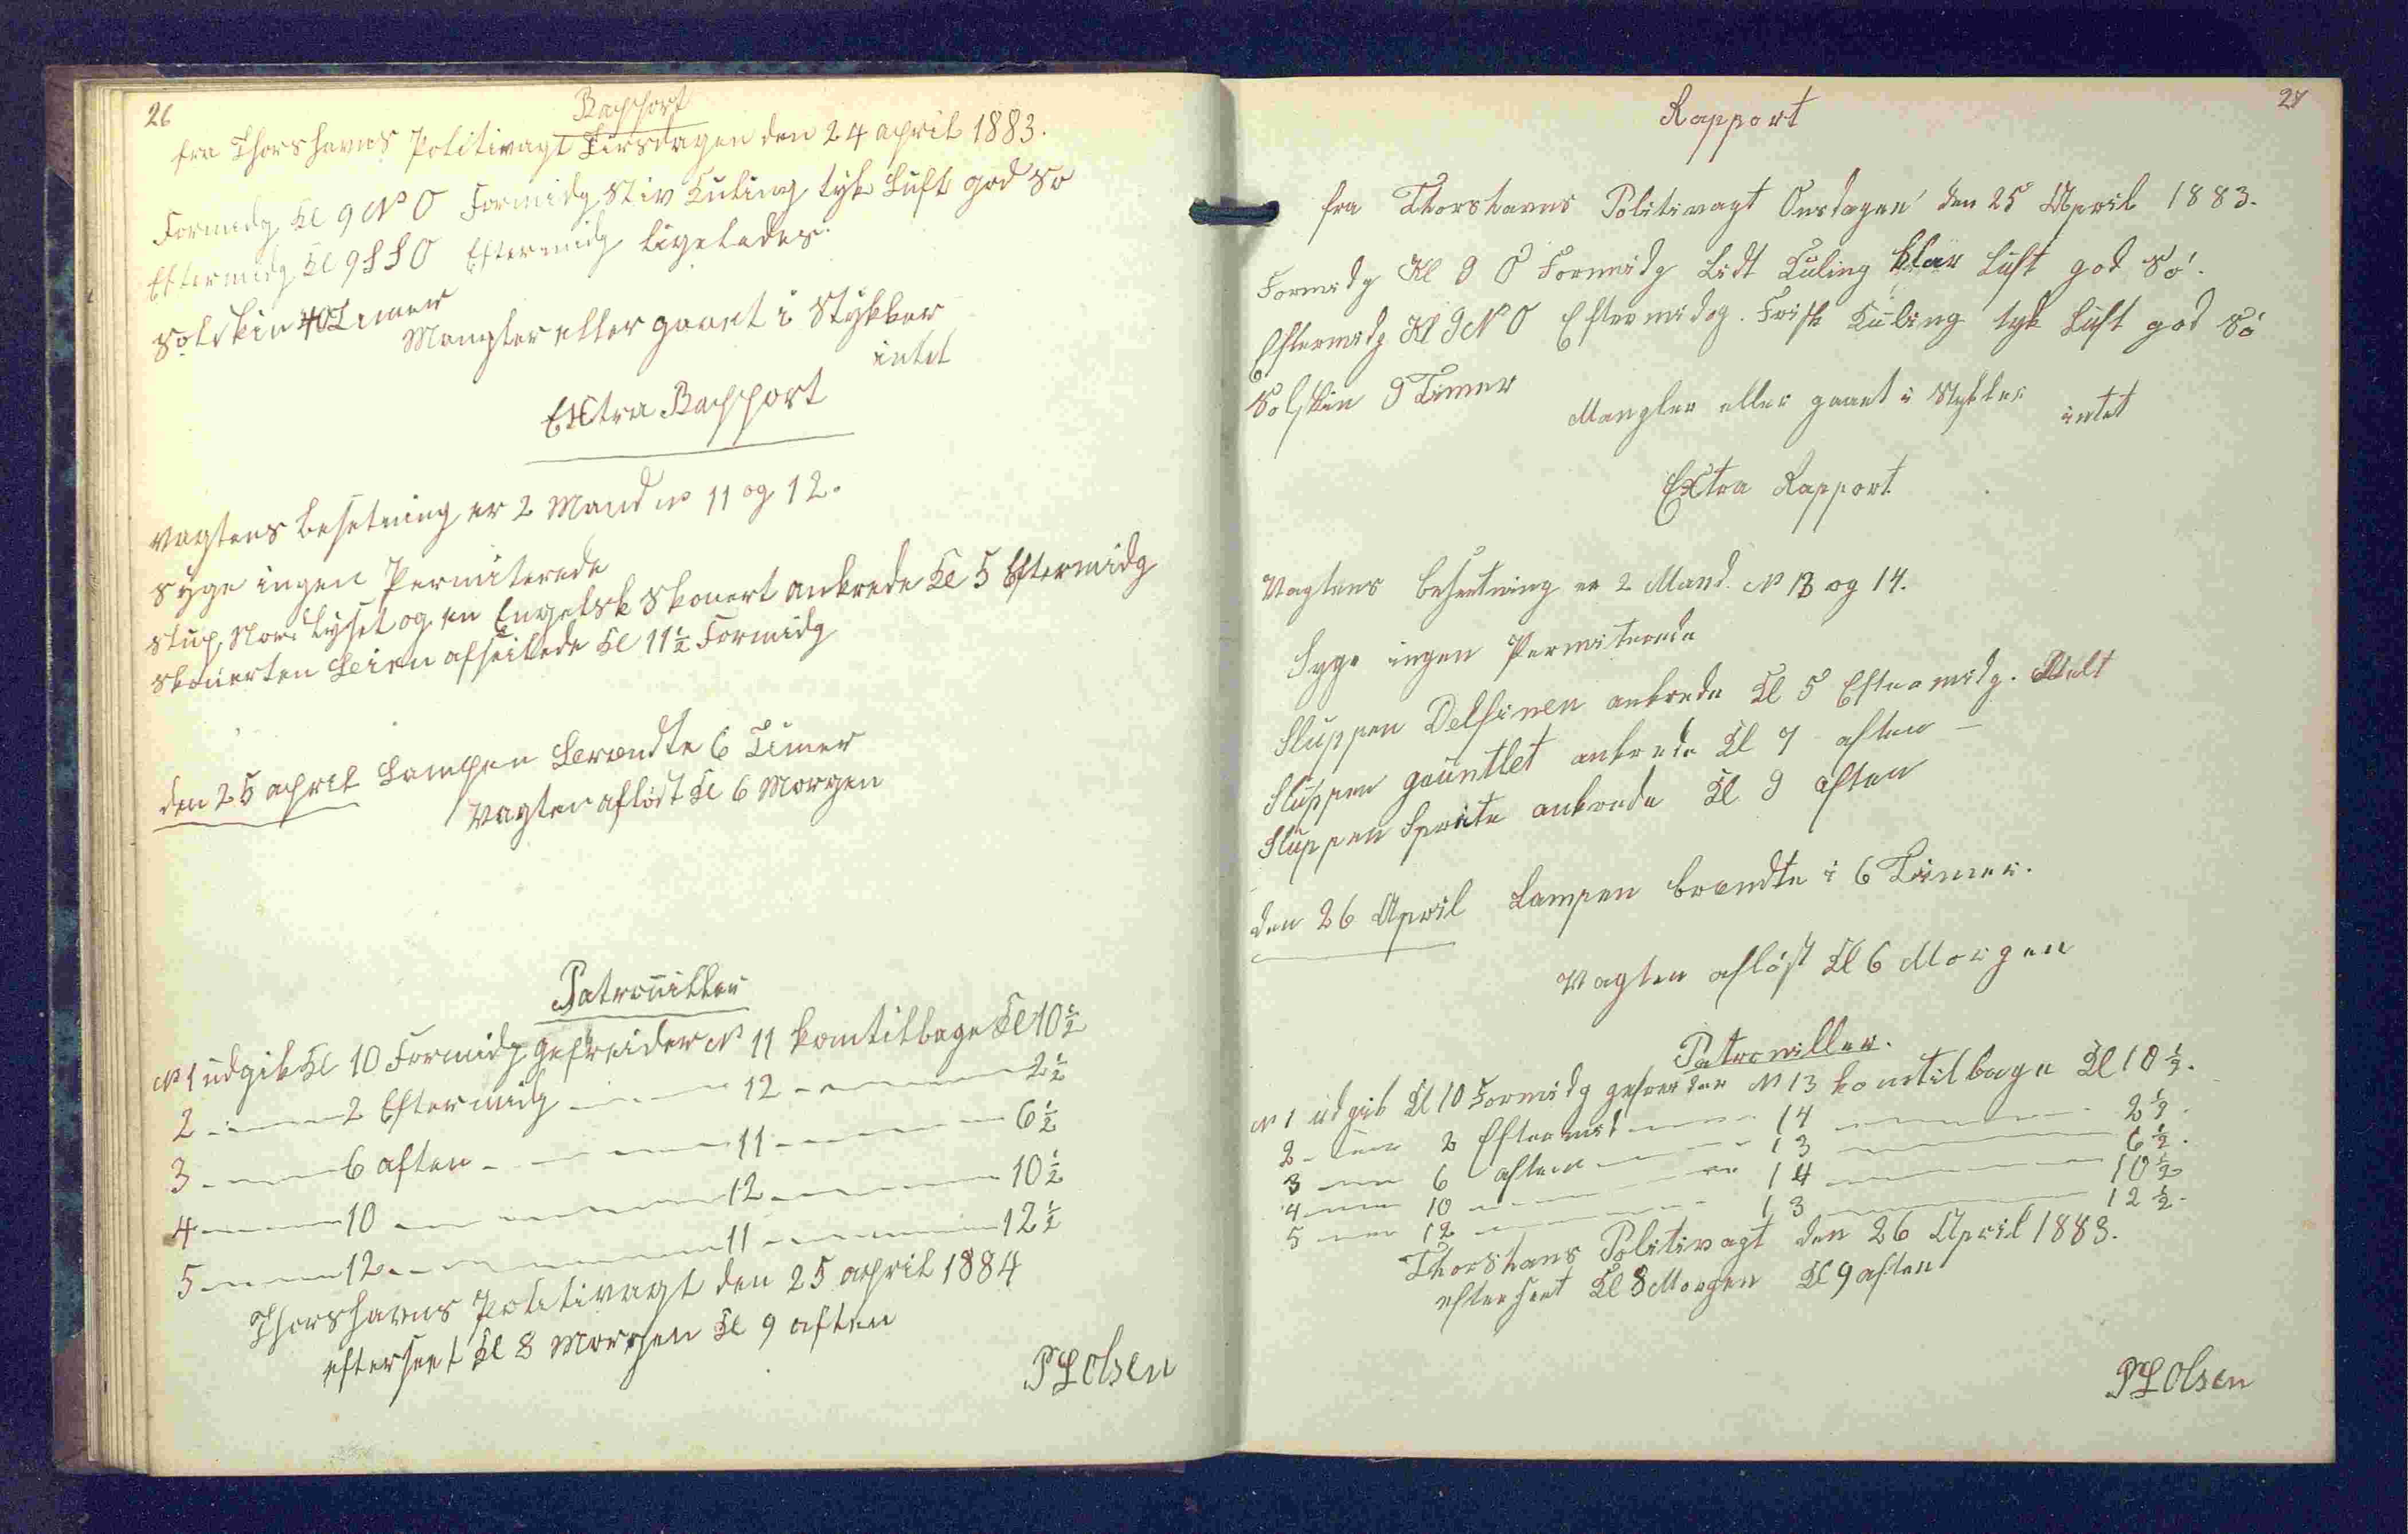 26
Rapport
fra Thorshavns Politivagt Tirsdagen den 24 april 1883.
Formidg Kl 9 N O Formidg Stiv Kuling tyk Luft god Sø
Eftermidg Kl 9 S S O Eftermidg ligeledes.
Solskin 4 Timer
Mangler eller gaaet i Stykker
intet
Extra Rapport
Vagtens besetning er 2 Mand No 11 og 12.
Syge ingen Permiterede
Slup. Nordlyset og en Engelsk Skonert ankrede Kl 5 Eftermidg
Skonerten afseilede Kl 11½ Formidg
den 25 april Lampen Brendte 6 Timer
Vagten afløst Kl 6 Morgen
Patrouiller
No 1 udgik Kl 10 Formidg gefreider No 11 kom tilbage Kl 10½
2 — 2 Eftermidg — 12 — 2½
3 — 6 aften — 11 — 6½
4 — 10 — 12 — 10½
5 — 12 — 11 — 12½
Thorshavns Politivagt den 25 april 1884
efterseet Kl 8 Morgen Kl 9 aften
P L Olsen
27
Rapport
fra Thorshavns Politivagt Onsdagen den 25 April 1883.
Formidg Kl 9 O Formidg Lidt Kuling klar Luft god Sø.
Eftermidg Kl 9 N O Eftermidg. Frisk Kuling tyk Luft god Sø
Solskin 9 Timer
Mangler eller gaaet i Stykker
intet
Extra Rapport
Vagtens besetning er 2 Mand. No 13 og 14.
Syge ingen Permiterede
Sluppen Delfinen ankrede Kl 5 Eftermidg.
Sluppen gauntlet ankrede Kl 7 aften —
Sluppen Sprite ankrede Kl 9 aften
den 26 April Lampen brændte i 6 Timer.
Vagten afløst Kl 6 Morgen
Patrouiller.
No 1 udgik Kl 10 Formidg gefreider No 13 kom tilbage Kl 10½.
2 — 2 Eftermid — 14 — 2½.
3 — 6 aften — 13 — 6½.
4 — 10 — 14 — 10½
5 — 12 — 13 — 12½.
Thorshans Politivagt den 26 April 1883.
efterseet Kl 8 Morgen Kl 9 aften
P L Olsen